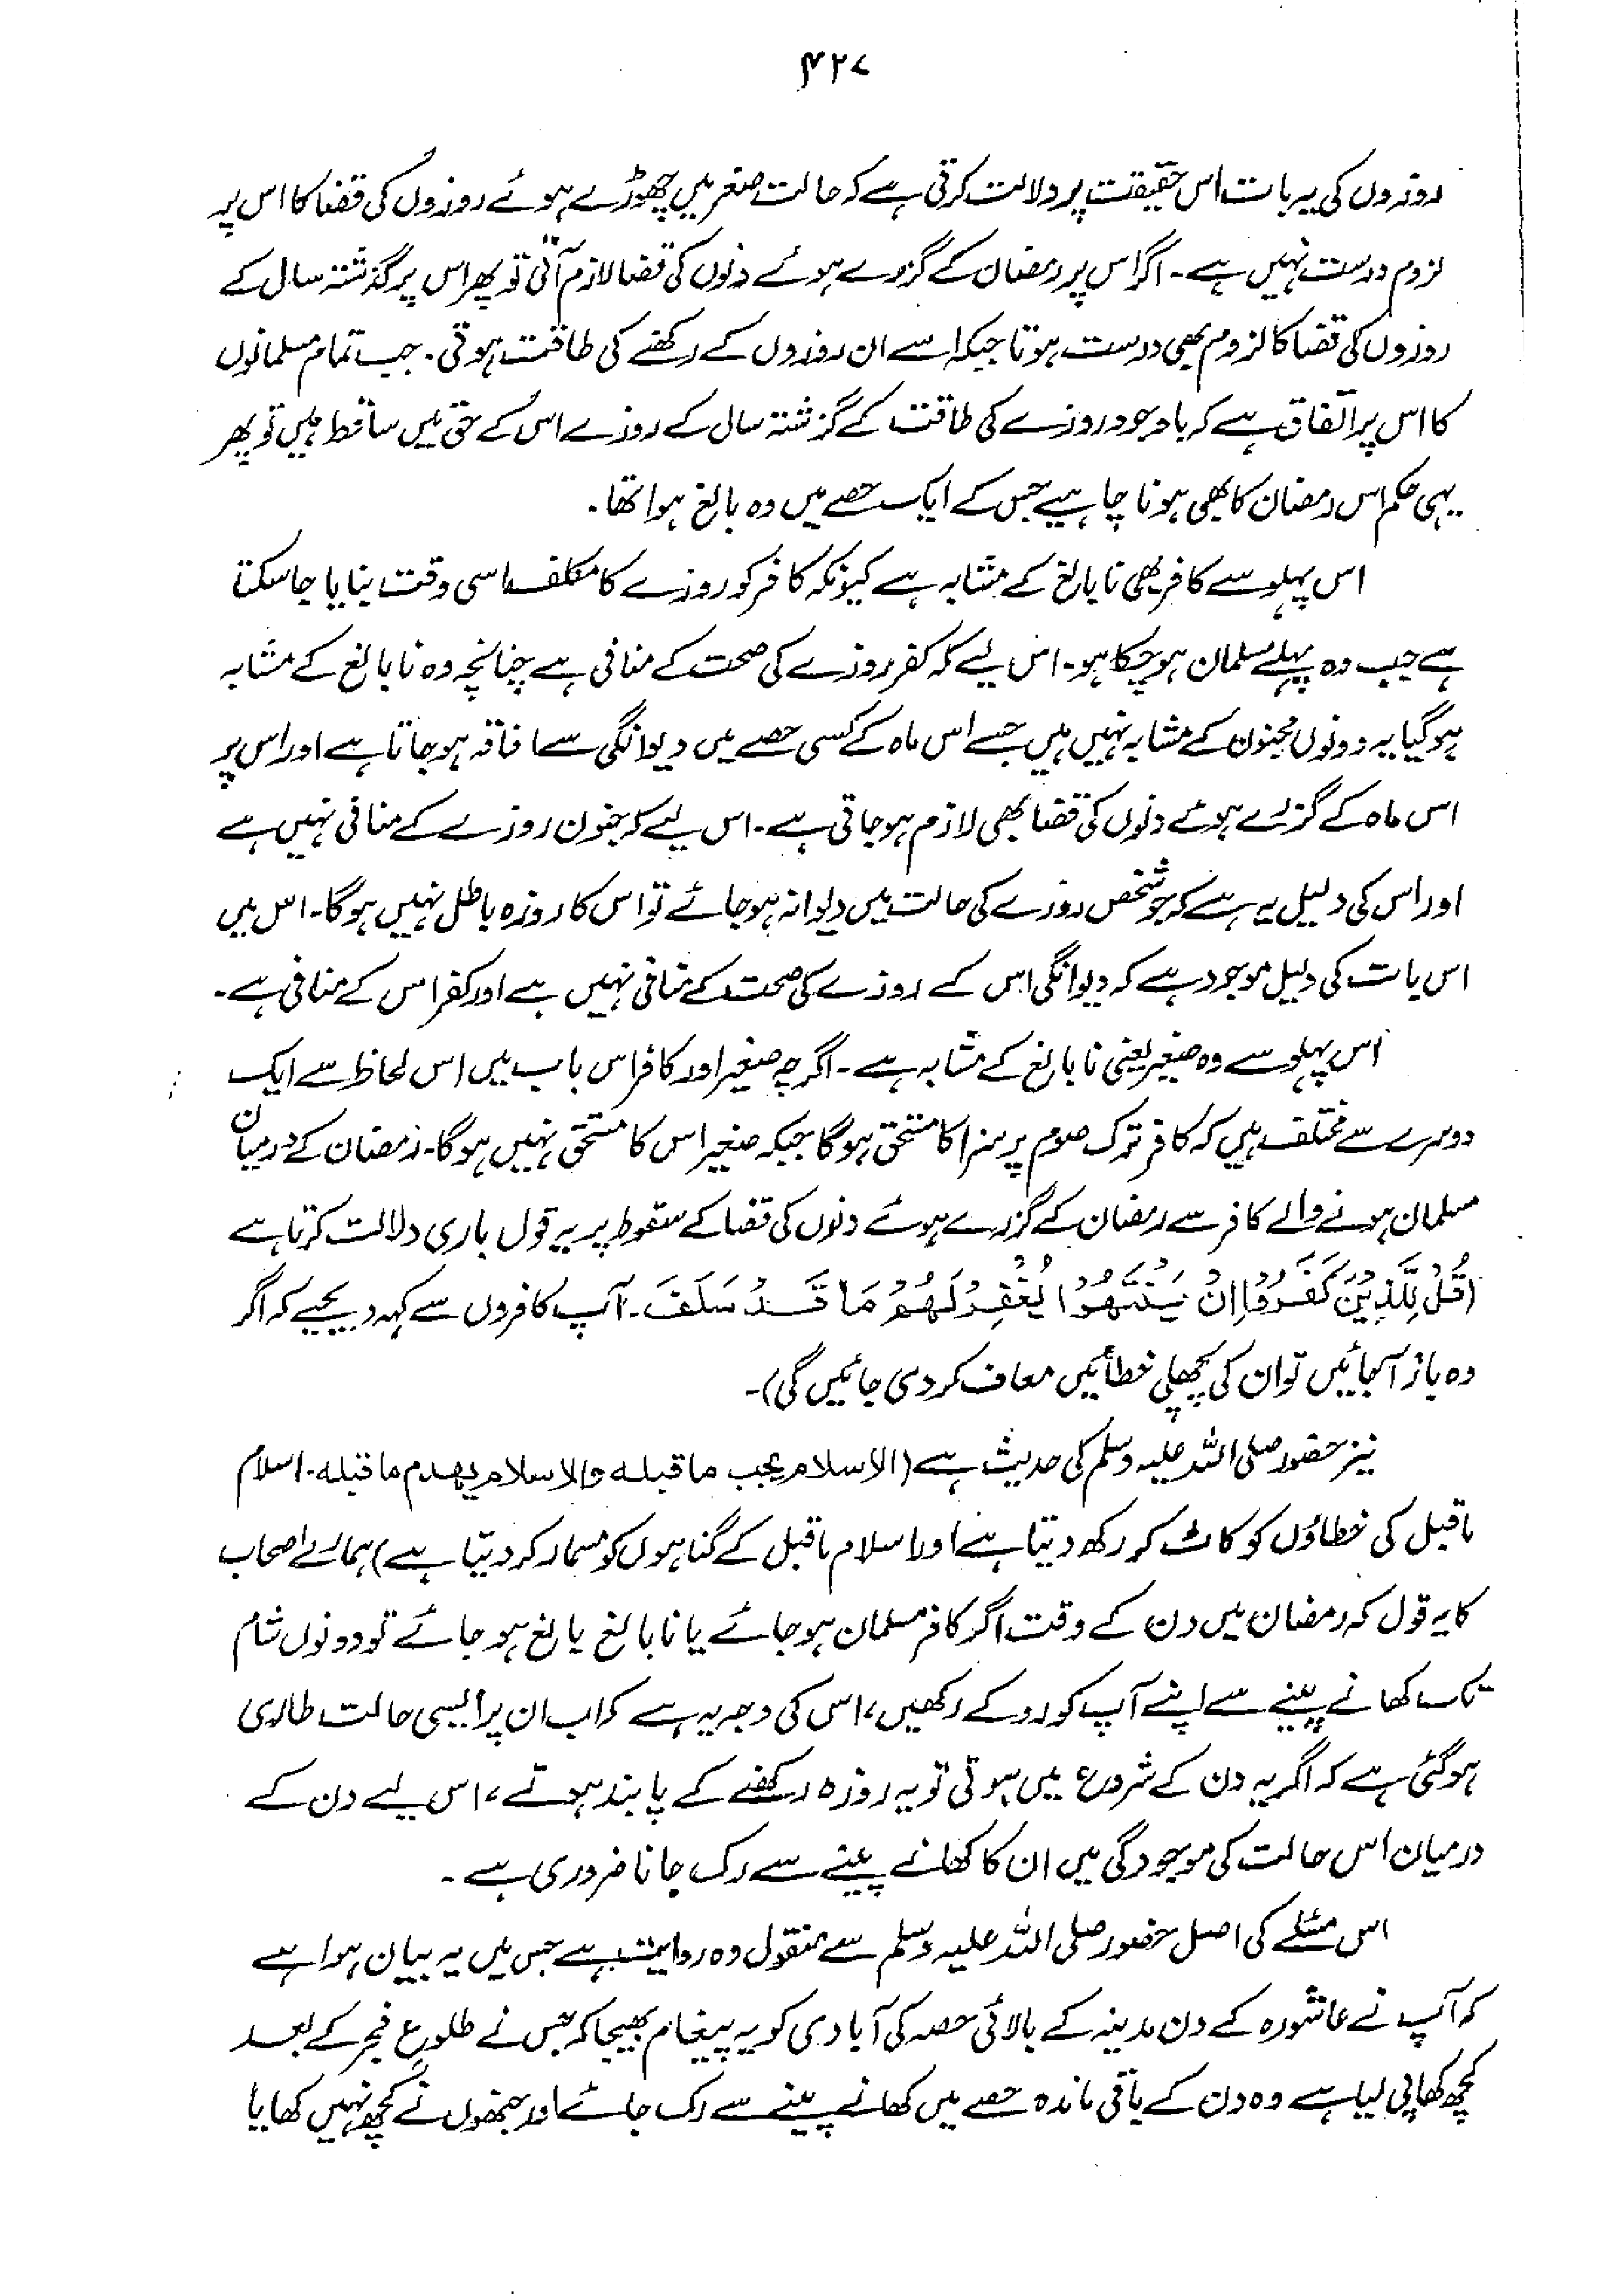 ۴۲۷
روزوں کی یہ بات اس حقیقت پر دلالت کرتی ہے کہ حالت صغر میں چھوڑے ہوئے روزوں کی قضا کا اس پر
لزوم درست نہیں ہے۔ اگر اس پر رمضان کے گزرے ہوئے دنوں کی قضا لازم آتی تو پھر اس پر گذشتہ سال کے
روزوں کی قضا کا لزوم بھی درست ہوتا جبکہ اسے ان روزوں کے رکھنے کی طاقت ہوتی۔ جب تمام مسلمانوں
کا اس پر اتفاق ہے کہ باوجود روزے کی طاقت کے گزشتہ سال کے روزے اس کے حق میں ساقط ہیں تو پھر
یہی حکم اس رمضان کا بھی ہونا چاہیے جس کے ایک حصے میں وہ بالغ ہوا تھا۔
اس پہلو سے کافر بھی نابالغ کے مشابہ ہے کیونکہ کافر کو روزے کا مکلف اسی وقت بنایا جا سکتا
ہے جب وہ پہلے مسلمان ہو چکا ہو۔ اس لیے کہ کفر روزے کی صحت کے منافی ہے چنانچہ وہ نابالغ کے مشابہ
ہو گیا یہ دونوں مجنون کے مشابہ نہیں ہیں جسے اس ماہ کے کسی حصے میں دیوانگی سے افاقہ ہو جاتا ہے اور اس پر
اس ماہ کے گزرے ہوئے دنوں کی قضا بھی لازم ہو جاتی ہے۔ اس لیے کہ جنون روزے کے منافی نہیں ہے
اور اس کی دلیل یہ ہے کہ جو شخص روزے کی حالت میں دیوانہ ہو جائے تو اس کا روزہ باطل نہیں ہوگا۔ اس میں
اس بات کی دلیل موجود ہے کہ دیوانگی اس کے روزے کی صحت کے منافی نہیں ہے اور کفر اس کے منافی ہے۔
اس پہلو سے وہ صغیر یعنی نابالغ کے مشابہ ہے۔ اگرچہ صغیر اور کافر اس باب میں اس لحاظ سے ایک
دوسرے سے مختلف ہیں کہ کافر ترک صوم پر سزا کا مستحق ہوگا جبکہ صغیر اس کا مستحق نہیں ہوگا۔ رمضان کے درمیان
مسلمان ہونے والے کافر سے رمضان کے گزرے ہوئے دنوں کی قضا کے سقوط پر یہ قول باری دلالت کرتا ہے
(قُلْ لِلَّذِيْنَ كَفَرُوْا اِنْ يَنْتَهُوْا يُغْفَرْ لَهُمْ مَا قَدْ سَلَفَ۔ آپ کافروں سے کہہ دیجیے کہ اگر
وہ باز آجائیں تو ان کی پچھلی خطائیں معاف کر دی جائیں گی)۔
نیز حضور صلی اللہ علیہ وسلم کی حدیث ہے (الاسلام یجب ما قبلہ والاسلام یھدم ما قبلہ۔ اسلام
ماقبل کی خطاؤں کو کاٹ کر رکھ دیتا ہے اور اسلام ماقبل کے گناہوں کو مسمار کر دیتا ہے) ہمارے اصحاب
کا یہ قول کہ رمضان میں دن کے وقت اگر کافر مسلمان ہو جائے یا نابالغ بالغ ہو جائے تو دونوں شام
تک کھانے پینے سے اپنے آپ کو روکے رکھیں، اس کی وجہ یہ ہے کہ اب ان پر ایسی حالت طاری
ہو گئی ہے کہ اگر یہ دن کے شروع میں ہوتی تو یہ روزہ رکھنے کے پابند ہوتے، اس لیے دن کے
درمیان اس حالت کی موجودگی میں ان کا کھانے پینے سے رک جانا ضروری ہے۔
اس مسئلے کی اصل حضور صلی اللہ علیہ وسلم سے منقول وہ روایت ہے جس میں یہ بیان ہوا ہے
کہ آپ نے عاشورہ کے دن مدینہ کے بالائی حصہ کی آبادی کو یہ پیغام بھیجا کہ جس نے طلوع فجر کے بعد
کچھ کھا پی لیا ہے وہ دن کے باقی ماندہ حصے میں کھانے پینے سے رک جائے اور جنھوں نے کچھ نہیں کھایا